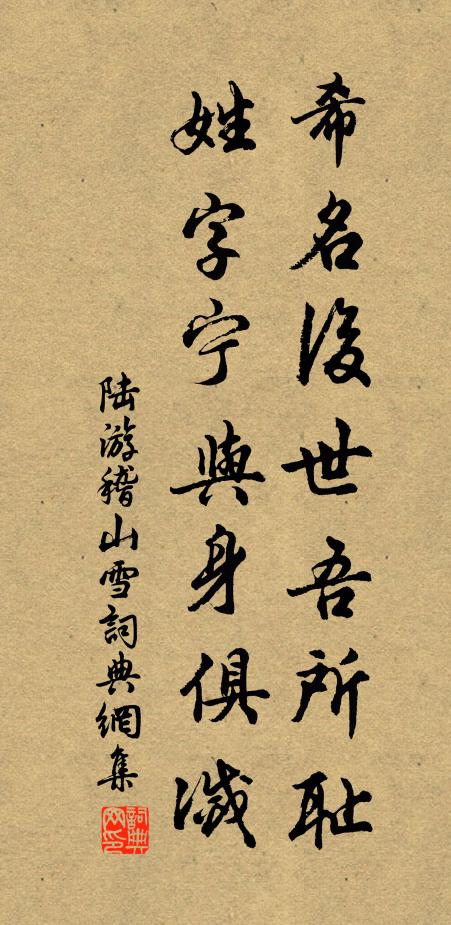 希名後世吾所耻
姓字宁與身俱滅
陆游稽山雪詞典網集
詞典网印